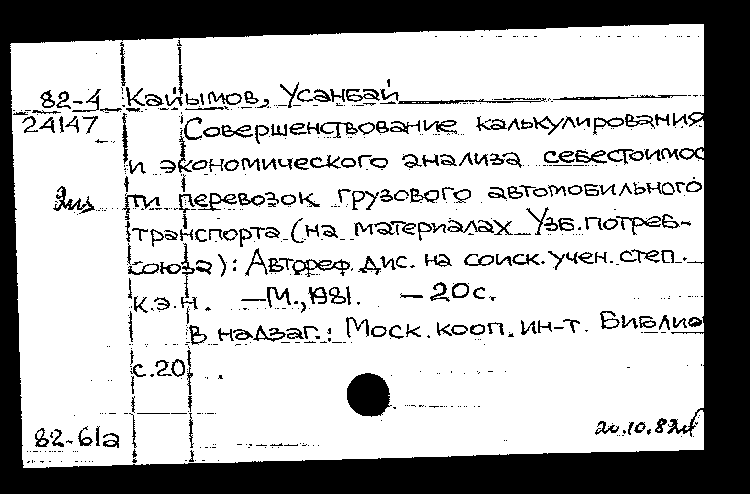 82-4 Кайымов, Усанбай
24147 Совершенствование калькулирования
и экономического анализа себестоимос
2из ти перевозок грузового автомобильного
транспорта (на материалах Узб.потреб-
союза): Автореф. дис. на соиск. учен. степ.
к.э.н. — М., 1981. — 20с.
В надзаг.: Моск. кооп. ин-т. Библиог
с.20.
82-61а 20.10.82